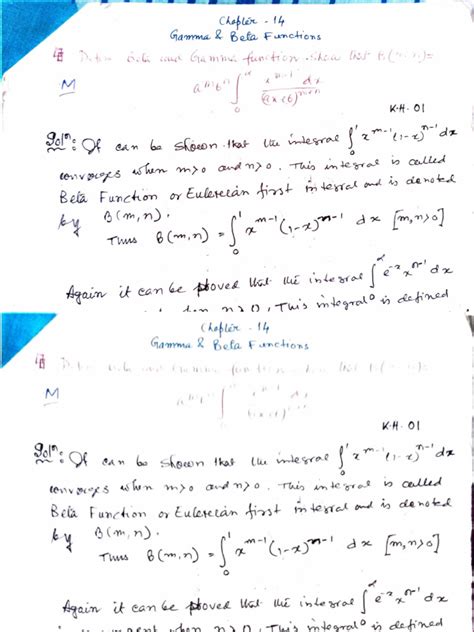 Chapter - 14
Gamma & Beta Functions
Define Beta and Gamma function. Show that B(m, n) =
M
a^m b^n ∫_0^∝ x^{m-1} dx / (ax+b)^{m+n}
K.H. 01
Solⁿ: It can be shown that the integral ∫_0^1 x^{m-1} (1-x)^{n-1} dx
converges when m>0 and n>0. This integral is called
Beta Function or Eulerian first integral and is denoted
by B(m, n).
Thus B(m, n) = ∫_0^1 x^{m-1} (1-x)^{n-1} dx [m, n>0]
Again it can be proved that the integral ∫_0^∝ e^{-x} x^{n-1} dx
n>0, This integral is defined
Chapter - 14
Gamma & Beta Functions
M
K.H. 01
Solⁿ: It can be shown that the integral ∫_0^1 x^{m-1} (1-x)^{n-1} dx
converges when m>0 and n>0. This integral is called
Beta Function or Eulerian first integral and is denoted
by B(m, n).
Thus B(m, n) = ∫_0^1 x^{m-1} (1-x)^{n-1} dx [m, n>0]
Again it can be proved that the integral ∫_0^∝ e^{-x} x^{n-1} dx
when n>0. This integral is defined